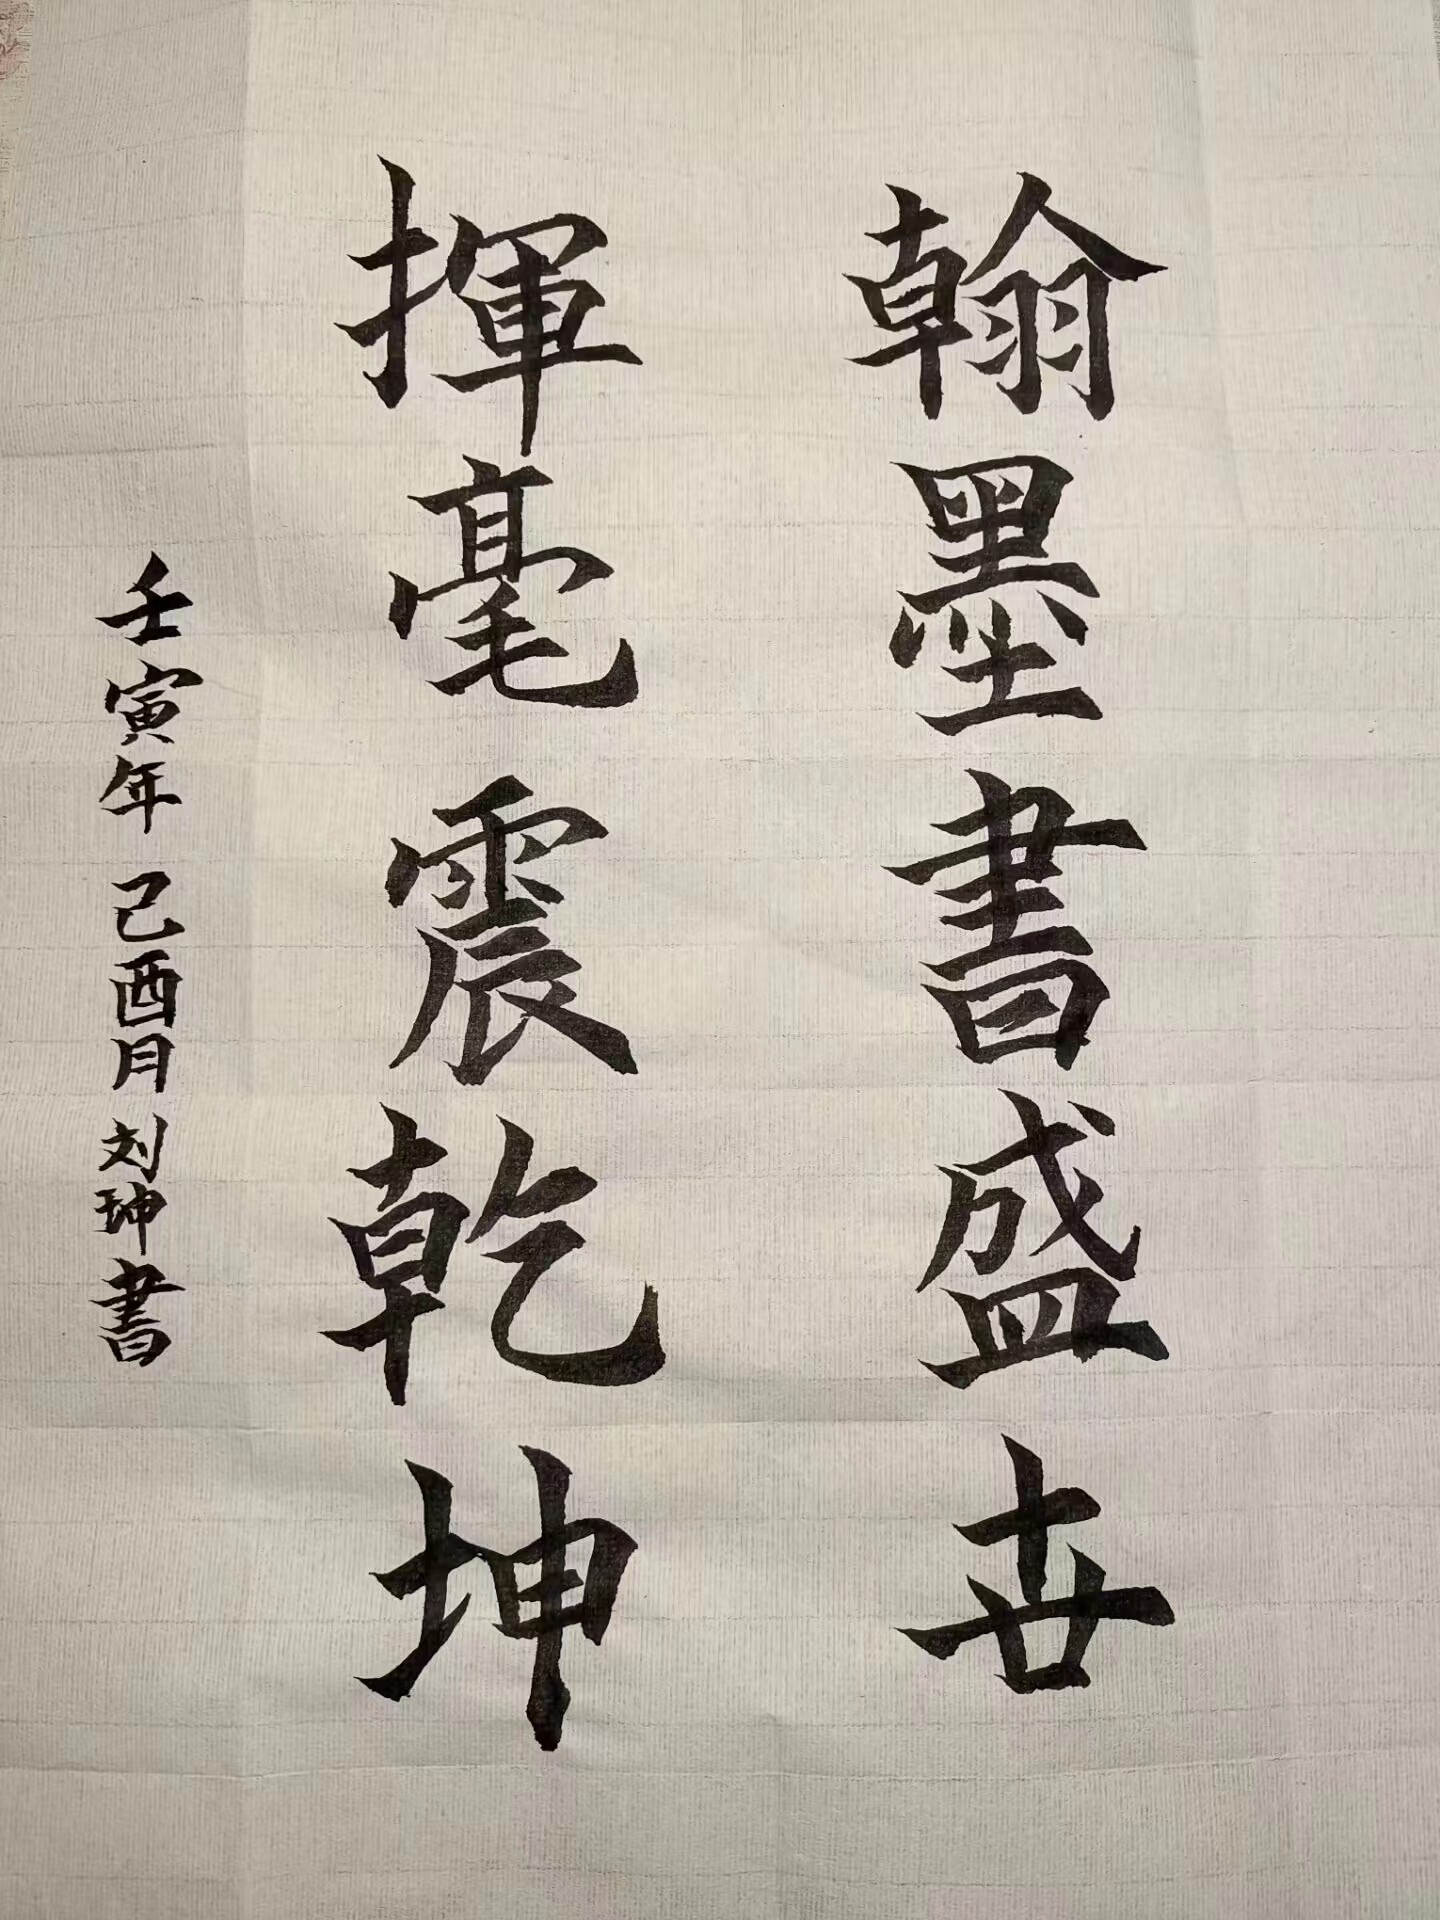 翰墨書盛世
揮毫震乾坤
壬寅年己酉月刘珅書